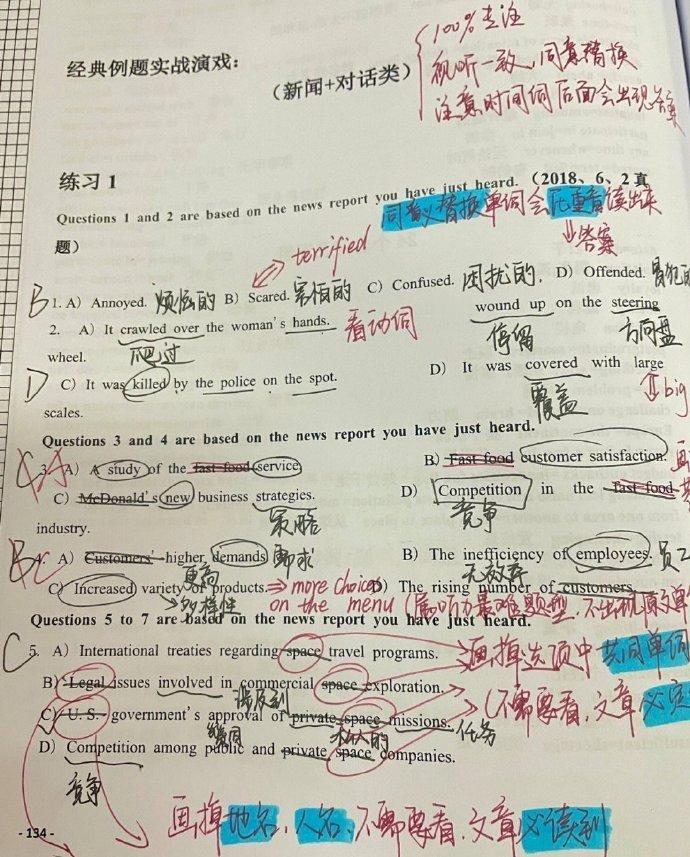 100%专注
经典例题实战演戏：
（新闻+对话类）
视听一致、同意替换
注意时间词后面会出现答案
练习 1
Questions 1 and 2 are based on the news report you have just heard.（2018、6、2 真
题）
同义替换单词会压重音读出来
答案
terrified
B 1. A) Annoyed. 烦恼的 B) Scared. 害怕的 C) Confused. 困扰的. D) Offended. 冒犯的
2. A) It crawled over the woman's hands. 看动词 wound up on the steering
爬过 停留 方向盘
wheel.
D) It was covered with large
D C) It was killed by the police on the spot.
覆盖 big
scales.
Questions 3 and 4 are based on the news report you have just heard.
3. A) A study of the fast-food service B) Fast-food customer satisfaction.
C) McDonald's new business strategies. D) Competition in the fast-food
策略 竞争
industry.
4. A) Customers' higher demands 需求 B) The inefficiency of employees. 员工
更高 无效率
C) Increased variety of products. ⇒ more choices D) The rising number of customers
多样性 on the menu (属听力最难题型，不出现原文单
Questions 5 to 7 are based on the news report you have just heard.
C 5. A) International treaties regarding space travel programs. 画掉选项中共同单词
B) Legal issues involved in commercial space exploration. (不需要看，文章必
涉及到
C) U. S. government's approval of private space missions. 任务
赞同 私人的
D) Competition among public and private space companies.
竞争
画掉地名、人名、不需要看，文章必读到
- 134 -